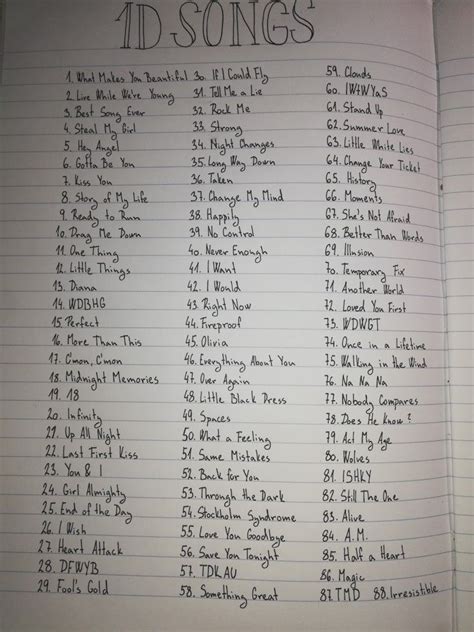 1D SONGS
1. What Makes You Beautiful
2. Live While We're Young
3. Best Song Ever
4. Steal My Girl
5. Hey Angel
6. Gotta Be You
7. Kiss You
8. Story of My Life
9. Ready to Run
10. Drag Me Down
11. One Thing
12. Little Things
13. Diana
14. WDBHG
15. Perfect
16. More Than This
17. C'mon, C'mon
18. Midnight Memories
19. 18
20. Infinity
21. Up All Night
22. Last First Kiss
23. You & I
24. Girl Almighty
25. End of the Day
26. I Wish
27. Heart Attack
28. DFWYB
29. Fool's Gold
30. If I Could Fly
31. Tell Me a Lie
32. Rock Me
33. Strong
34. Night Changes
35. Long Way Down
36. Taken
37. Change My Mind
38. Happily
39. No Control
40. Never Enough
41. I Want
42. I Would
43. Right Now
44. Fireproof
45. Olivia
46. Everything About You
47. Over Again
48. Little Black Dress
49. Spaces
50. What a Feeling
51. Same Mistakes
52. Back for You
53. Through the Dark
54. Stockholm Syndrome
55. Love You Goodbye
56. Save You Tonight
57. TDKAU
58. Something Great
59. Clouds
60. IW4WYAS
61. Stand Up
62. Summer Love
63. Little White Lies
64. Change Your Ticket
65. History
66. Moments
67. She's Not Afraid
68. Better Than Words
69. Illusion
70. Temporary Fix
71. Another World
72. Loved You First
73. WDWGT
74. Once in a Lifetime
75. Walking in the Wind
76. Na Na Na
77. Nobody Compares
78. Does He Know?
79. Act My Age
80. Wolves
81. ISHKY
82. Still The One
83. Alive
84. A.M.
85. Half a Heart
86. Magic
87. TMD 88. Irresistible